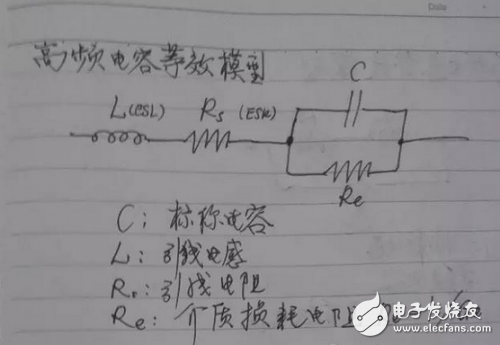 Date
高频电容等效模型
C
L(ESL) Rs (ESR)
Re
C: 标称电容
L: 引线电感
Rs: 引线电阻
Re: 介质损耗电阻
电子发烧友
www.elecfans.com